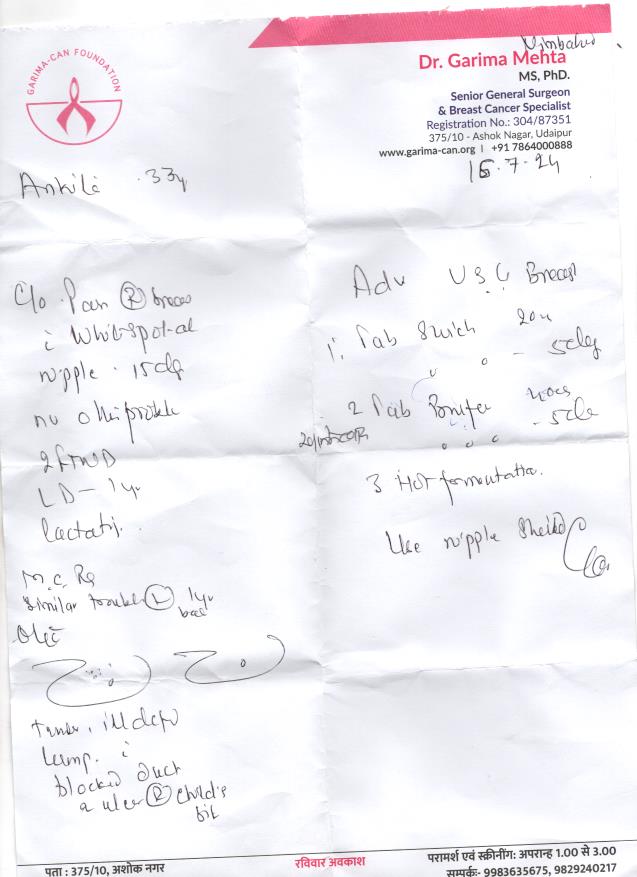 GARIMA-CAN FOUNDATION
Dr. Garima Mehta
MS, PhD.
Senior General Surgeon
& Breast Cancer Specialist
Registration No.: 304/87351
375/10 - Ashok Nagar, Udaipur
www.garima-can.org | +91 7864000888
15.7.24
33y
C/o Pain (R) breas
white spot at
nipple. 15 day
no other proble
2 FTND
LD - 1 yr
lactati
M.C. Rg
Similar trouble (L) 1 yr
bac
O/E
Tender, ill defd
lump.
blocked duct
a ulcer (R) child's
bit
Adv USG Breast
1. Tab
- 5 day
2 Tab
3 Hot fermentation.
Use nipple Sheild
पता : 375/10, अशोक नगर
रविवार अवकाश
परामर्श एवं स्क्रीनींग: अपरान्ह 1.00 से 3.00
सम्पर्क: 9983635675, 9829240217